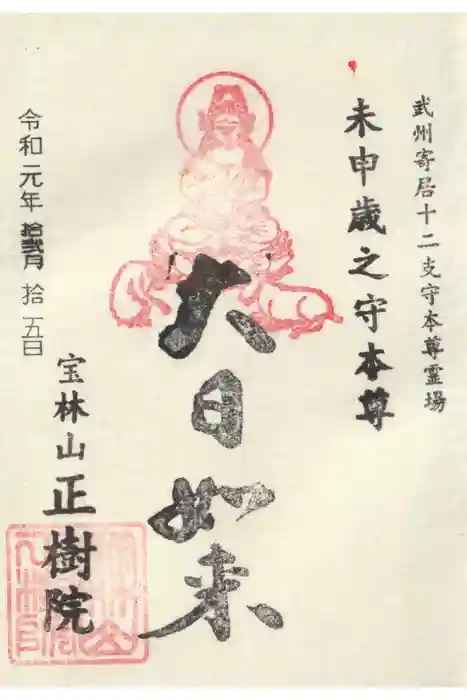 武州寄居十二支守本尊霊場
未申歳之守本尊
大日如来
令和元年 拾弐月 拾五日
宝林山 正樹院